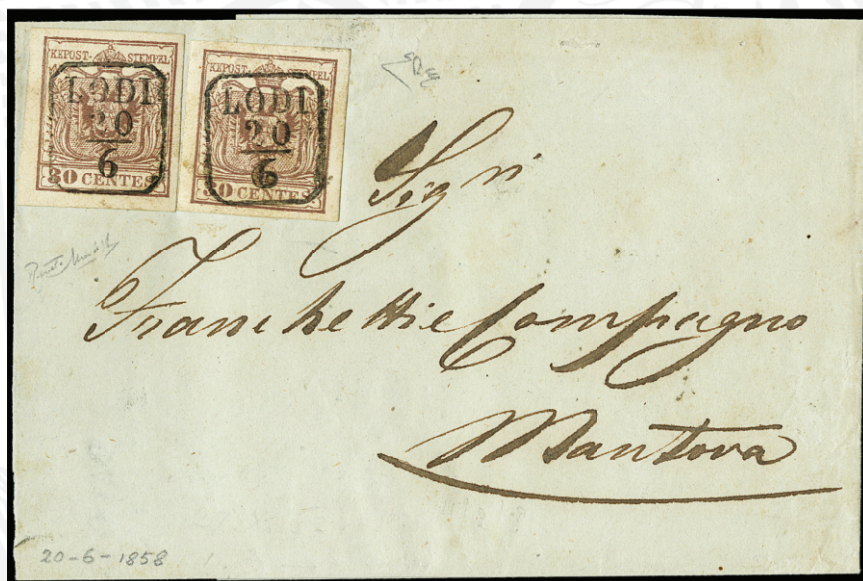 KKPOST-STEMPEL
LODI
20
6
30 CENTES.
KKPOST-STEMPEL
LODI
20
6
30 CENTES.
Sigri
Franchetti e Compagno
Mantova
20-6-1858